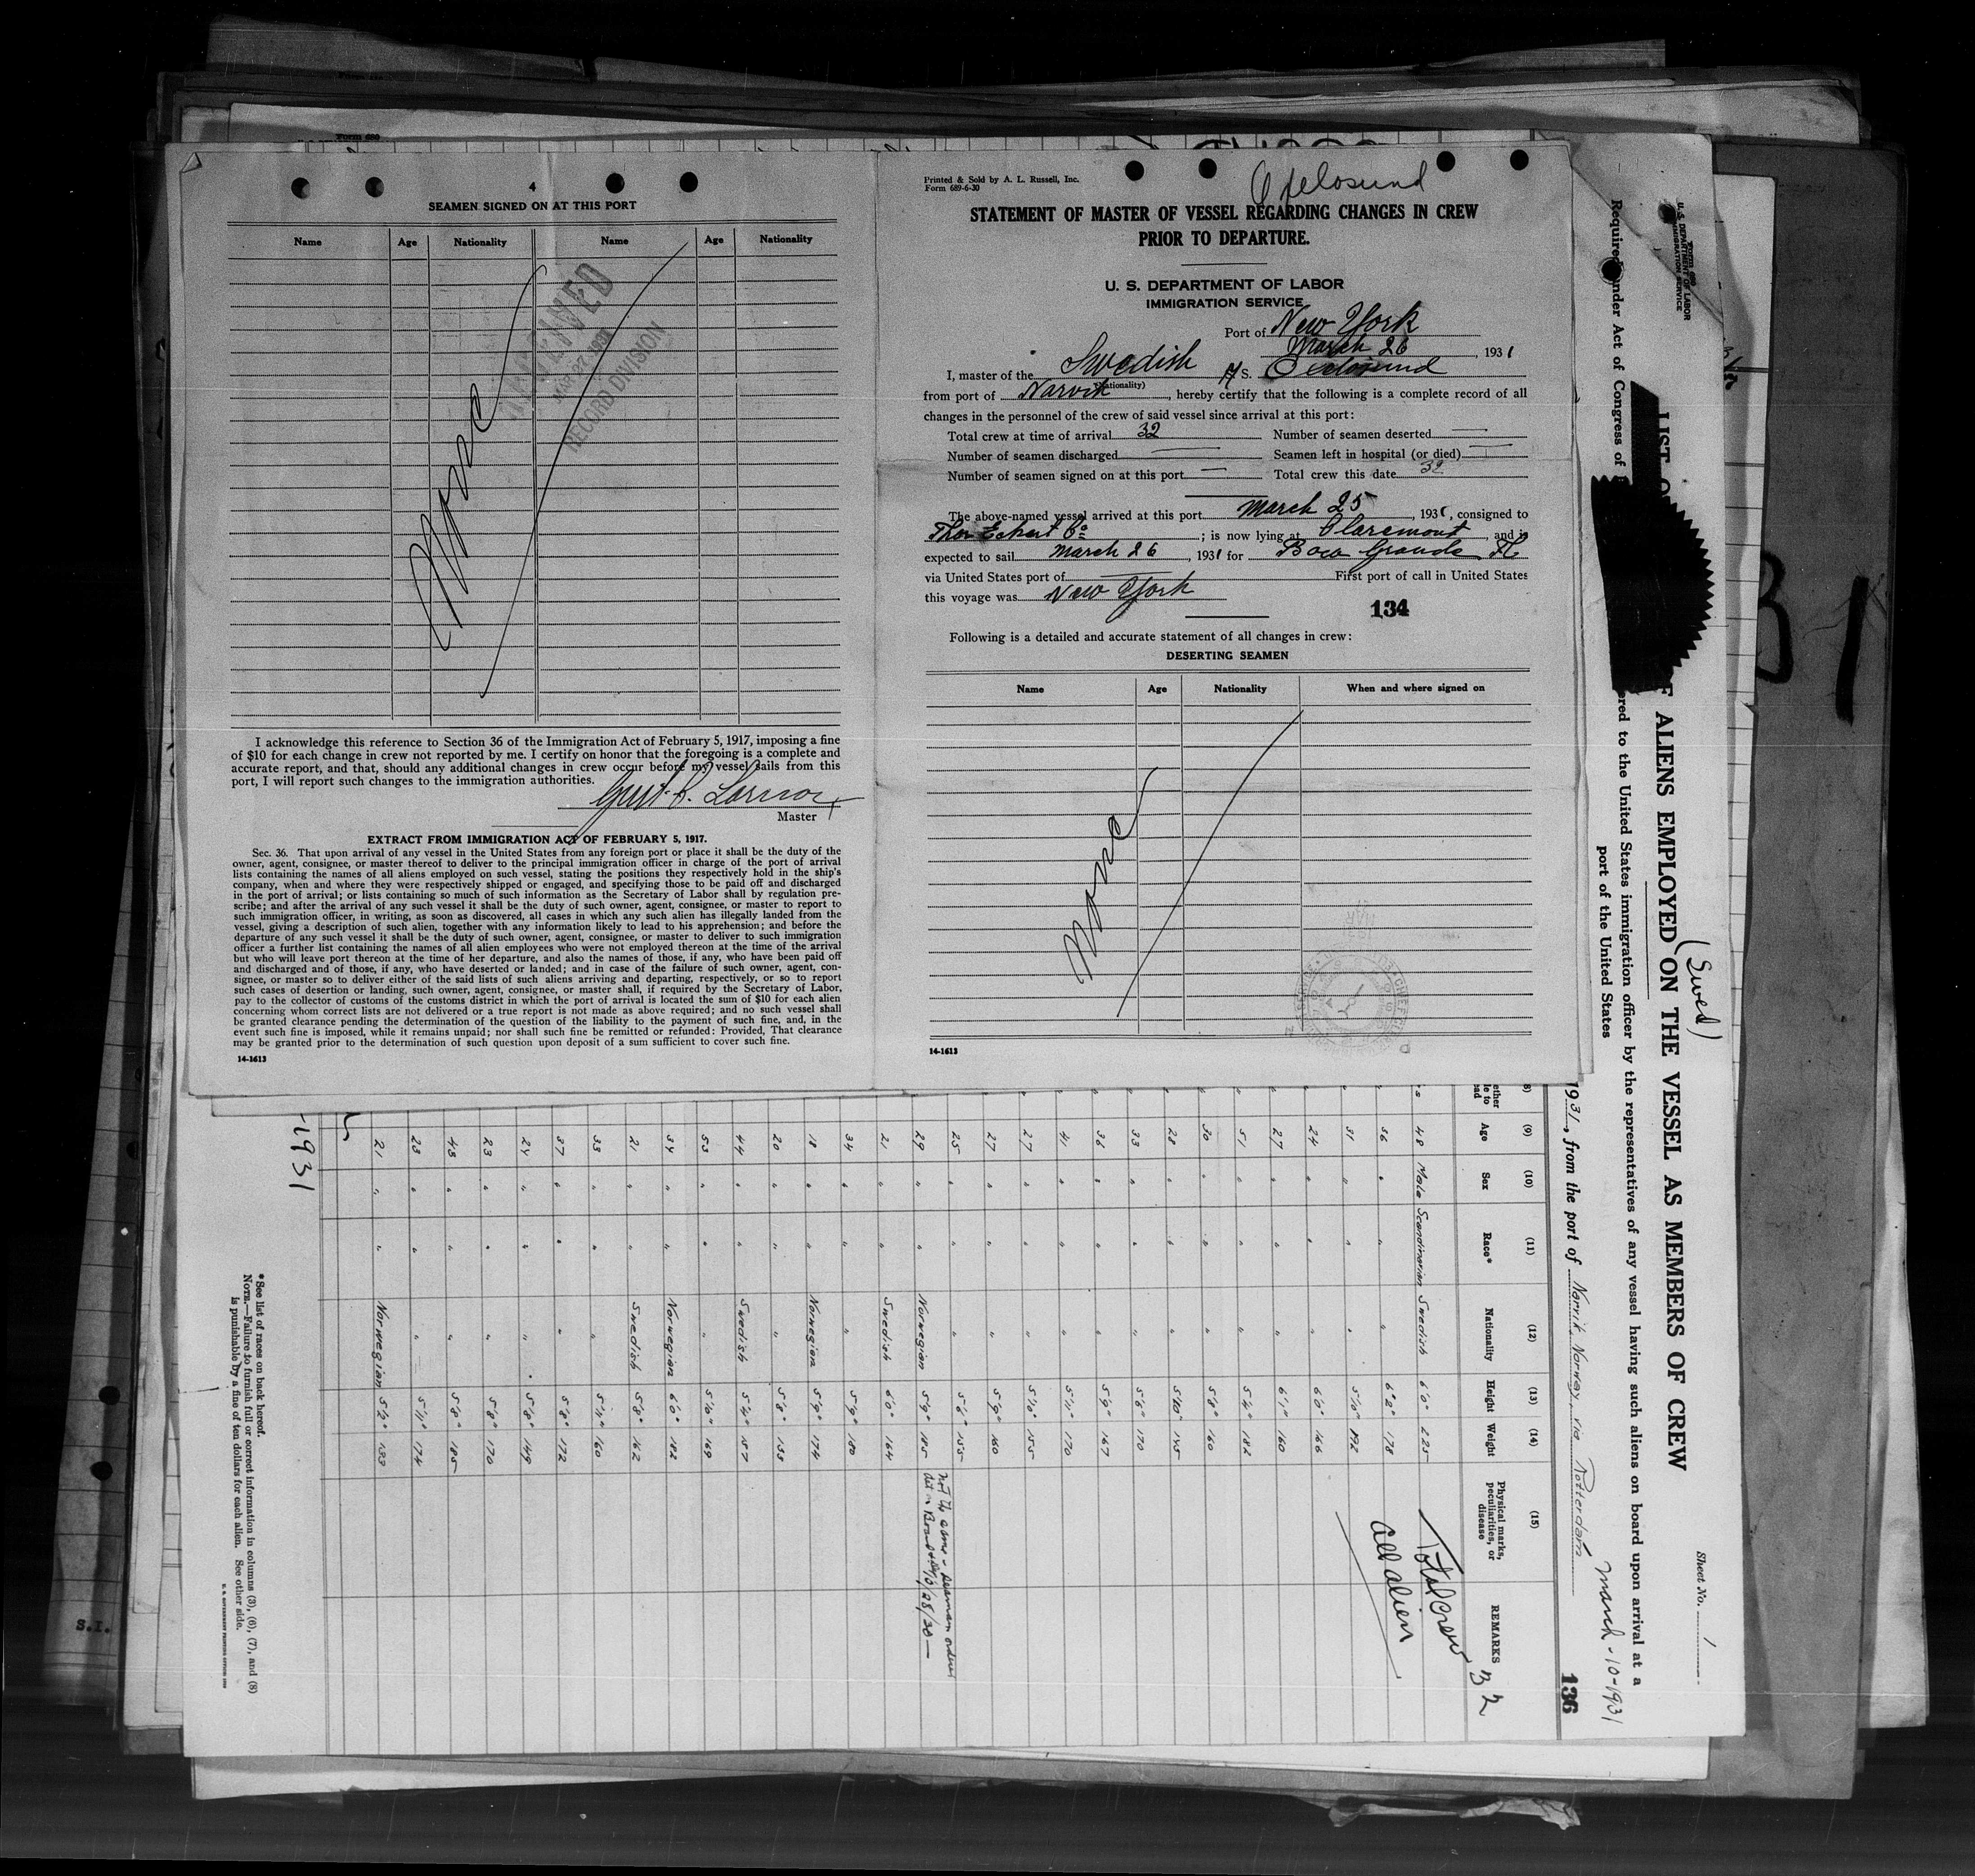 4
SEAMEN SIGNED ON AT THIS PORT
Name Age Nationality Name Age Nationality
None
RECEIVED
MAR 27 1931
RECORD DIVISION
I acknowledge this reference to Section 36 of the Immigration Act of February 5, 1917, imposing a fine
of $10 for each change in crew not reported by me. I certify on honor that the foregoing is a complete and
accurate report, and that, should any additional changes in crew occur before my vessel sails from this
port, I will report such changes to the immigration authorities.
Master
EXTRACT FROM IMMIGRATION ACT OF FEBRUARY 5, 1917.
Sec. 36. That upon arrival of any vessel in the United States from any foreign port or place it shall be the duty of the
owner, agent, consignee, or master thereof to deliver to the principal immigration officer in charge of the port of arrival
lists containing the names of all aliens employed on such vessel, stating the positions they respectively hold in the ship's
company, when and where they were respectively shipped or engaged, and specifying those to be paid off and discharged
in the port of arrival; or lists containing so much of such information as the Secretary of Labor shall by regulation pre-
scribe; and after the arrival of any such vessel it shall be the duty of such owner, agent, consignee, or master to report to
such immigration officer, in writing, as soon as discovered, all cases in which any such alien has illegally landed from the
vessel, giving a description of such alien, together with any information likely to lead to his apprehension; and before the
departure of any such vessel it shall be the duty of such owner, agent, consignee, or master to deliver to such immigration
officer a further list containing the names of all alien employees who were not employed thereon at the time of the arrival
but who will leave port thereon at the time of her departure, and also the names of those, if any, who have been paid off
and discharged and of those, if any, who have deserted or landed; and in case of the failure of such owner, agent, con-
signee, or master so to deliver either of the said lists of such aliens arriving and departing, respectively, or so to report
such cases of desertion or landing, such owner, agent, consignee, or master shall, if required by the Secretary of Labor,
pay to the collector of customs of the customs district in which the port of arrival is located the sum of $10 for each alien
concerning whom correct lists are not delivered or a true report is not made as above required; and no such vessel shall
be granted clearance pending the determination of the question of the liability to the payment of such fine, and, in the
event such fine is imposed, while it remains unpaid; nor shall such fine be remitted or refunded: Provided, That clearance
may be granted prior to the determination of such question upon deposit of a sum sufficient to cover such fine.
14-1613
Printed & Sold by A. L. Russell, Inc.
Form 689-6-30
Oxelosund
STATEMENT OF MASTER OF VESSEL REGARDING CHANGES IN CREW
PRIOR TO DEPARTURE.
U. S. DEPARTMENT OF LABOR
IMMIGRATION SERVICE
Port of New York
March 26, 1931
I, master of the Swedish S. Oxelosund
(Nationality)
from port of Narvik, hereby certify that the following is a complete record of all
changes in the personnel of the crew of said vessel since arrival at this port:
Total crew at time of arrival 32 Number of seamen deserted —
Number of seamen discharged — Seamen left in hospital (or died) —
Number of seamen signed on at this port — Total crew this date 32
The above-named vessel arrived at this port March 25, 1931, consigned to
Thor Eckert Co; is now lying at Claremont, and is
expected to sail March 26, 1931 for Boca Grande Fl
via United States port of — First port of call in United States
this voyage was New York
134
Following is a detailed and accurate statement of all changes in crew:
DESERTING SEAMEN
Name Age Nationality When and where signed on
None
14-1613
Form 680
U. S. DEPARTMENT OF LABOR
IMMIGRATION SERVICE
Sheet No. 1
(Swed)
ALIENS EMPLOYED ON THE VESSEL AS MEMBERS OF CREW
Required under Act of Congress of
ered to the United States immigration officer by the representatives of any vessel having such aliens on board upon arrival at a
port of the United States
March-10-1931
1931, from the port of Narvik Norway, via Rotterdam
136
(9) (10) (11) (12) (13) (14) (15)
Age Sex Race* Nationality Height Weight Physical marks, peculiarities, or disease REMARKS
Total Crew 32
all alien
48 Male Scandinavian Swedish 6'0" 225
36 " " " 6'2" 178
31 " " " 5'10" 192
24 " " " 6'0" 166
27 " " " 6'1" 160
51 " " " 5'4" 182
30 " " " 5'8" 160
28 " " " 5'10" 145
33 " " " 5'6" 170
36 " " " 5'9" 167
41 " " " 5'11" 170
27 " " " 5'10" 155
27 " " " 5'9" 160
25 " " " 5'6" 155
29 " " Norwegian 5'9" 185 not the same seaman ordered
21 " " Swedish 6'0" 164
34 " " " 5'9" 180
18 " " Norwegian 5'9" 174
20 " " " 5'8" 155
44 " " Swedish 5'6" 157
53 " " " 5'10" 169
34 " " Norwegian 6'0" 182
21 " " Swedish 5'8" 162
33 " " " 5'4" 160
37 " " " 5'8" 172
24 " " " 5'8" 149
23 " " " 5'8" 170
45 " " " 5'8" 185
23 " " " 5'11" 174
21 " " Norwegian 5'2" 133
-1931
*See list of races on back hereof.
NOTE.—Failure to furnish full or correct information in columns (3), (6), (7), and (8)
is punishable by a fine of ten dollars for each alien. See other side.
S.I.